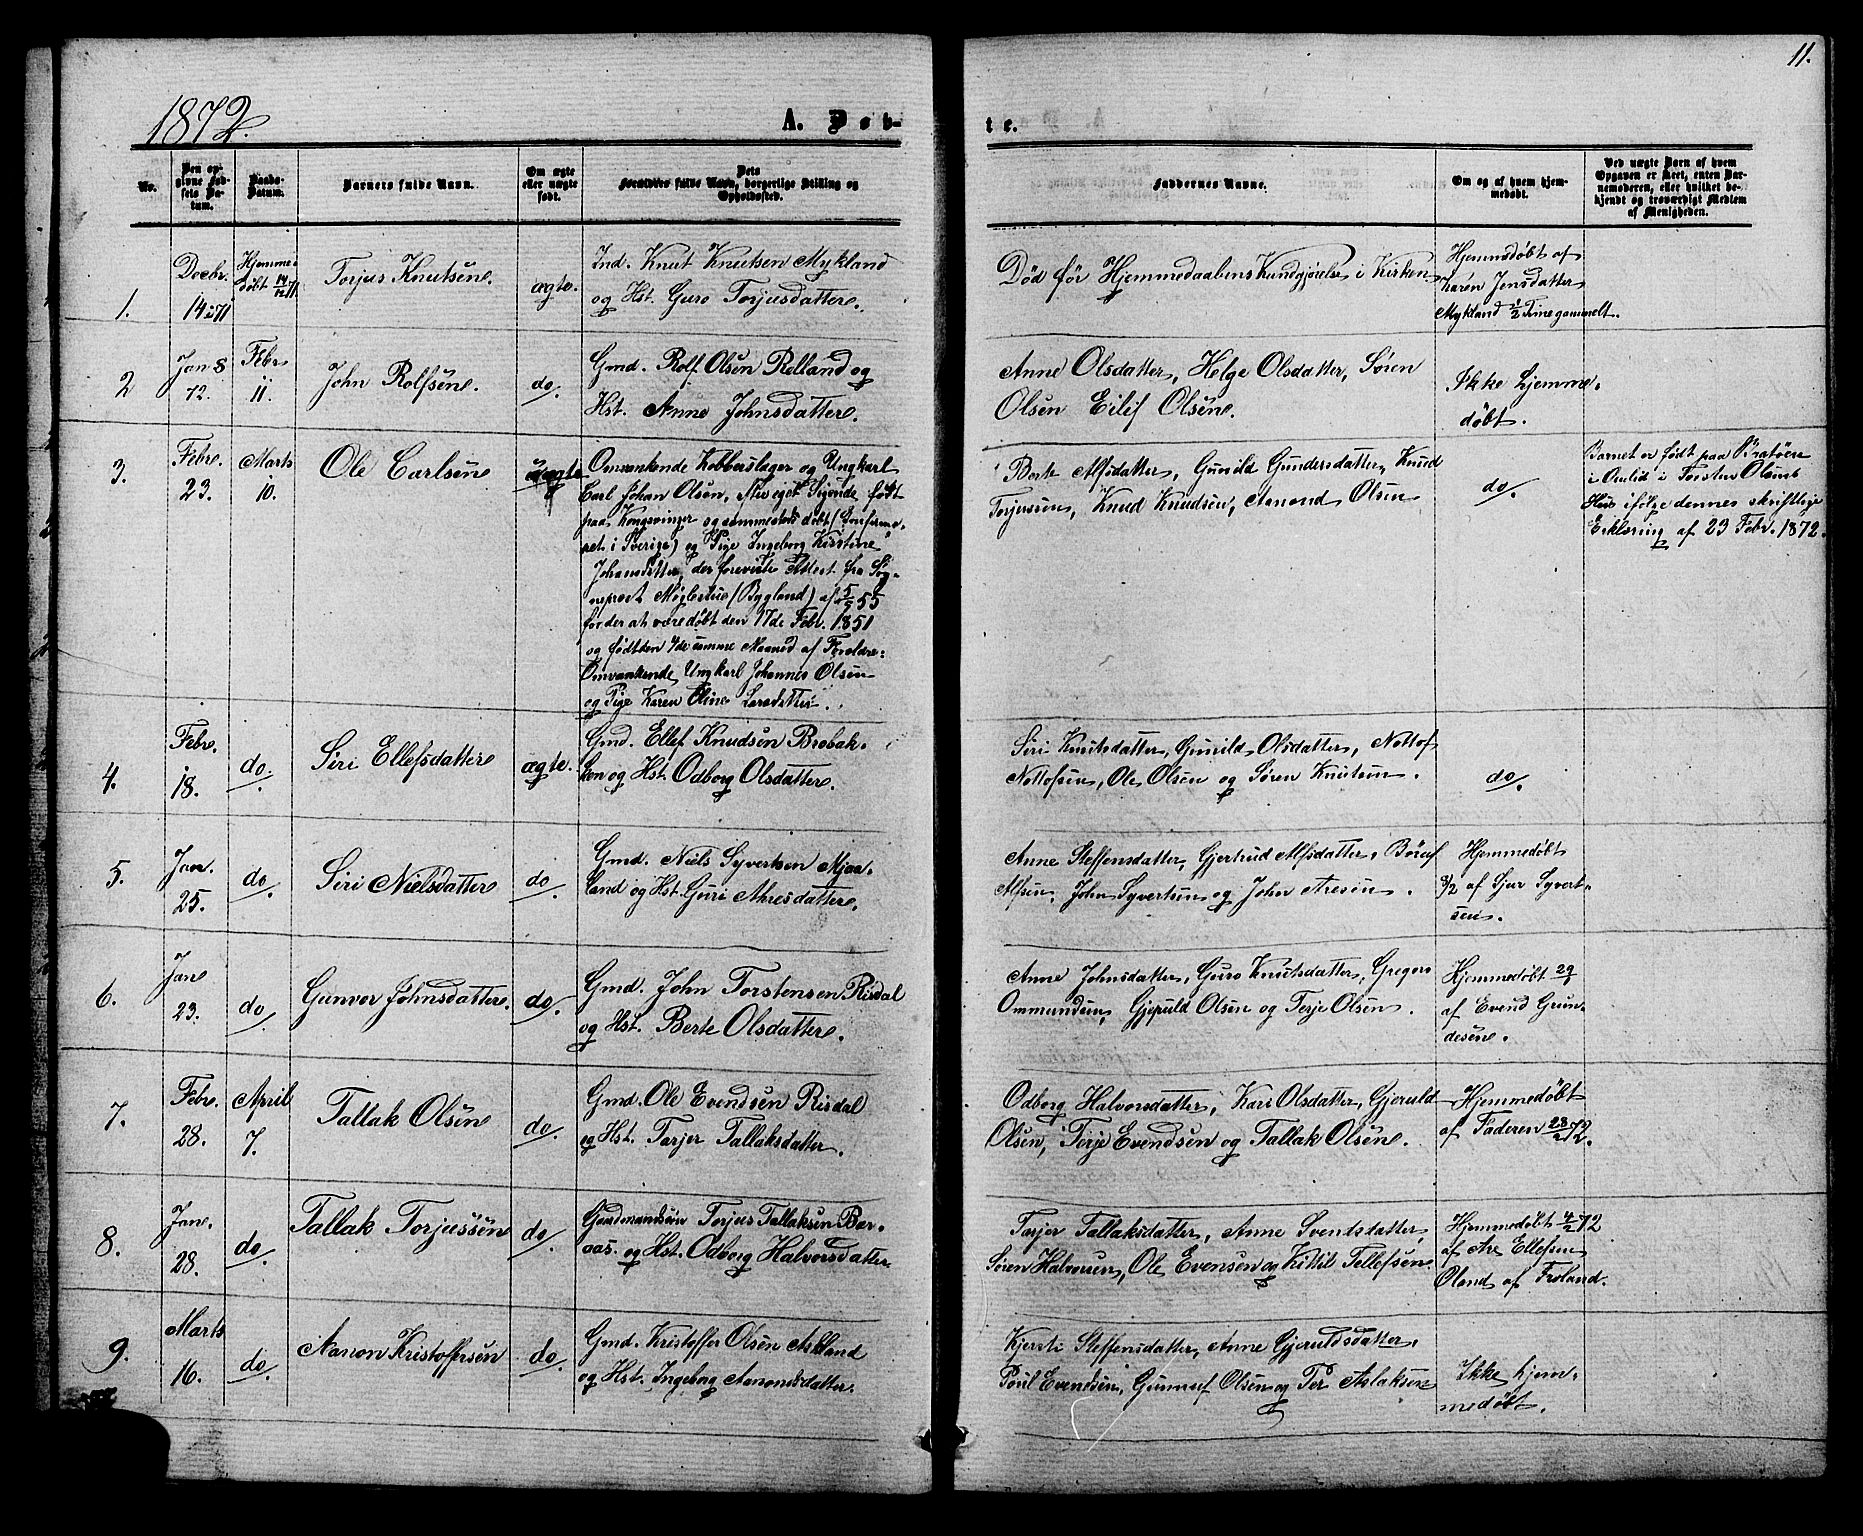 11.
1872.
A. Døb-
te.
No.
Den op-
givne Fød-
sels Da-
tum.
Daabs-
Datum.
Barnets fulde Navn.
Om ægte
eller uægte
født.
Dets
Forældres fulde Navn, borgerlige Stilling og
Opholdssted.
Faddernes Navne.
Om og af hvem hjem-
medøbt.
Ved uægte Barn af hvem
Opgaven er skeet, enten Bar-
nemoderen, eller hvilket be-
kjendt og troværdigt Medlem
af Menigheden.
1.
Decbr.
14 71
Hjemme-
døbt 14/12 71
Torjus Knutsen
ægte.
Ind. Knut Knutsen Mykland
og Hst. Guro Torjusdatter.
Død før Hjemmedaabens Kundgjørelse i Kirken
Hjemmedøbt af
Karen Jensdatter
Mykland 1/2 Time gammelt.
2
Jan 8
72.
Febr
11.
John Rolfsen.
do.
Gmd. Rolf Olsen Relland og
Hst. Anne Johnsdatter.
Anne Olsdatter, Helge Olsdatter, Søren
Olsen Eilif Olsen.
Ikke hjemme-
døbt.
3.
Febr.
23.
Marts
10.
Ole Carlsen
uægte
Omvankende Kobberslager og Ungkarl
Carl Johan Olsen, født
paa Kongsvinger og sammesteds døbt (Confirme-
ret i Sverige) og Pige Ingeborg Kirstine
Johansdatter, der foreviste Attest fra Sog-
neprest Møglestue (Bygland) af 5/9 55
for der at være døbt den 17de Febr. 1851
og født den 4de samme Maaned af Forældre
Omvankende Ungkarl Johannes Olsen
og Pige Karen Oline Larsdatter.
Berte Alfsdatter, Gunild Gundersdatter, Knud
Torjussen, Knud Knudsen, Aamond Olsen
do.
Barnet er født paa Bratøen
i Omlid i Torsten Olsens
Hus ifølge dennes skriftlige
Erklæring af 23 Febr. 1872.
4.
Febr.
18.
do.
Siri Ellefsdatter
ægte.
Gmd. Ellef Knudsen Brobak-
ken og Hst. Odborg Olsdatter.
Siri Knutsdatter, Gunild Olsdatter, Nottof
Nottofsen, Ole Olsen og Søren Knutsen.
do.
5.
Janr.
25.
do.
Siri Nielsdatter
do.
Gmd. Niels Syvertsen Mjaa-
land og Hst. Guri Ahresdatter.
Anne Steffensdatter, Gjertrud Alfsdatter,
Alfsen, John Syvertsen og John Aresen.
Hjemmedøbt
3/2 af Sjur Syvert-
sen.
6.
Jan.
23.
do.
Gunvor Johnsdatter.
do.
Gmd. John Torstensen Risdal
og Hst. Berte Olsdatter.
Anne Johnsdatter, Guro Knutsdatter, Gregers
Ommundsen, Gjeruld Olsen og Terje Olsen.
Hjemmedøbt 29/1
af Evend Grun-
desen.
7.
Febr.
28.
April
7.
Tallak Olsen
do.
Gmd. Ole Evendsen Risdal
og Hst. Tarjer Tallaksdatter.
Odborg Halvorsdatter, Kari Olsdatter, Gjeruld
Olsen, Terje Evendsen og Tallak Olsen.
Hjemmedøbt
af Faderen 28/2 72.
8.
Jan.
28.
do.
Tallak Torjussen
do.
Gaardmandsøn Torjus Tallaksen Bar-
aas. og Hst. Odborg Halvorsdatter.
Tarjer Tallaksdatter, Anne Svendsdatter,
Søren Halvorsen, Ole Evensen og Kittil Tellefsen.
Hjemmedøbt 4/2 72
af Are Ellefsen
Oland af Froland.
9.
Marts
16.
do.
Aanon Kristoffersen
do.
Gmd. Kristoffer Olsen Askland
og Hst. Ingeborg Aanonsdatter.
Kjersti Steffensdatter, Anne Gjeruldsdatter,
Poul Evendsen, Gunnuf Olsen og Per Aslaksen
Ikke hjem-
medøbt.